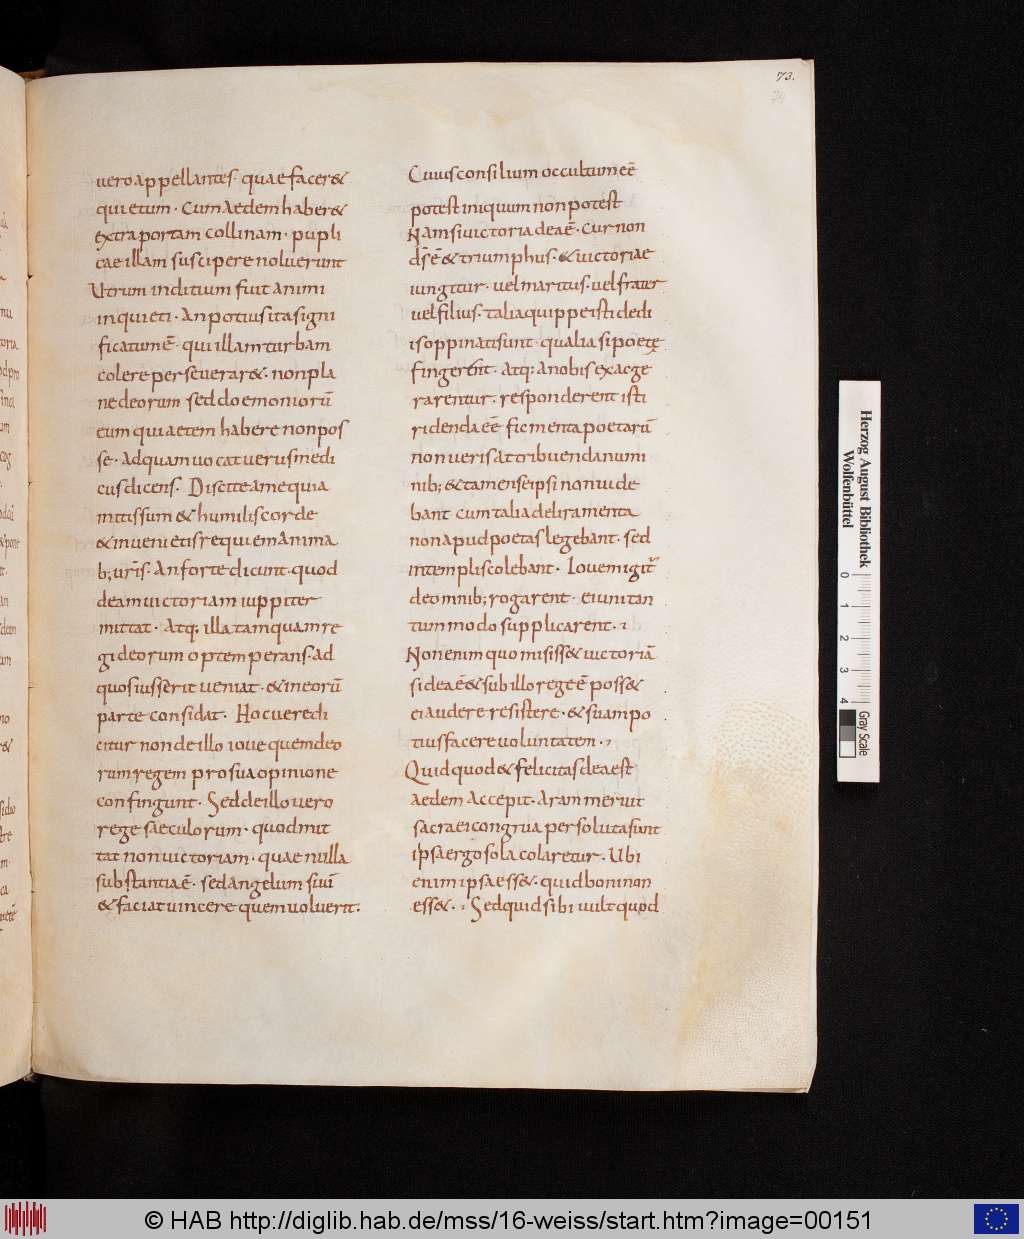 73.
74
uero appellantes· quae facer&
quietum· Cum Aedem haber&
extra portam collinam· pupli
cae illam suscipere noluerunt
Utrum inditium fuit animi
inquieti· An potius ita signi
ficatum ē· qui illam turbam
colere perseuerar&· non pla
ne deorum sed doemoniorū
eum quiaetem habere non pos
se· Ad quam uocat uerus medi
cus dicens· Discite a me quia
mitis sum & humilis corde
& inuenietis requiem Anima
b; urīs· An forte dicunt· quod
deam uictoriam iuppiter
mittat· Atq; illa tamquam re
gi deorum optemperans· ad
quos iusserit ueniat· & in eorū
parte considat· Hoc uere di
citur non de illo ioue quem deo
rum regem pro sua opinione
confingunt· Sed de illo uero
rege saeculorum· quod mit
tat non uictoriam· quae nulla
substantia ē· sed Angelum suū
& faciat uincere quem uoluerit·
Cuius consilium occultum eē
potest iniquum non potest
Nam si uictoria dea ē· Cur non
d̄s ē & triumphus· & uictoriae
iungitur· uel maritus· uel frater
uel filius· talia quippe isti de di
is oppinati sunt· qualia si poetę
fingerent· Atq; a nobis exacge
rarentur· responderent isti
ridenda eē ficmenta poetarū
non ueris attribuenda numi
nib; & tamen se ipsi non uide
bant cum talia deliramenta
non apud poetas legebant· sed
in templis colebant· Iouem igit᷑
de omnib; rogarent· ei uni tan
tum modo supplicarent·
Non enim quo misiss& uictoriā
si dea ē & sub illo rege ē poss&
ei audere resistere· & suam po
tius facere uoluntatem·
Quid quod & felicitas dea est
Aedem Accepit· Aram meruit
sacra ei congrua persoluta sunt
ipsa ergo sola colaretur· Ubi
enim ipsa ess&· quid boni non
ess&· Sed quid sibi uult quod
Herzog August Bibliothek
Wolfenbüttel
0 1 2 3 4
Gray Scale
© HAB http://diglib.hab.de/mss/16-weiss/start.htm?image=00151